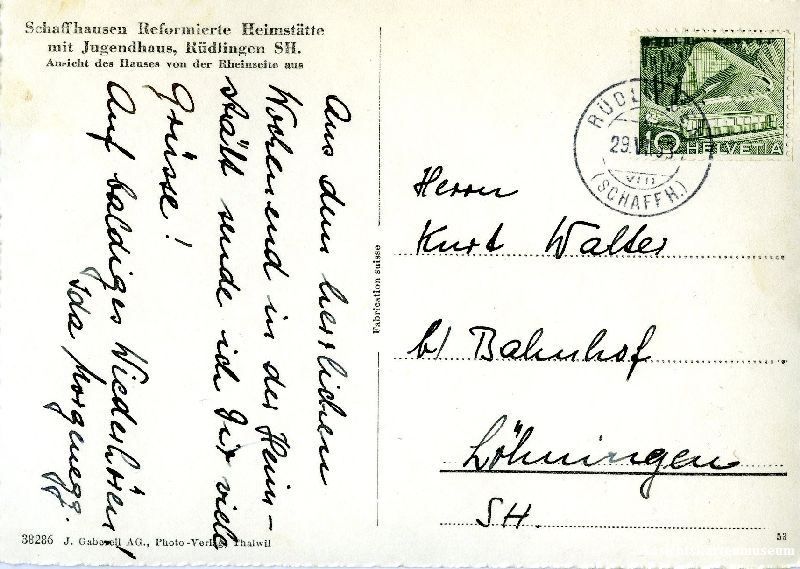 Schaffhausen Reformierte Heimstätte
mit Jugendhaus, Rüdlingen SH.
Ansicht des Hauses von der Rheinseite aus
Aus dem herrlichen
Wochenend in der Heim-
stätt sende ich Dir viele
Grüsse!
Auf baldiges Wiederhören!
Ida Morgenegg.
Fabrication suisse
HELVETIA
10
RÜDLINGEN
29.VI.53
(SCHAFFH.)
Herrn
Kurt Walter
b/ Bahnhof
Löhningen
SH.
38286 J. Gaberell AG., Photo-Verlag Thalwil
53